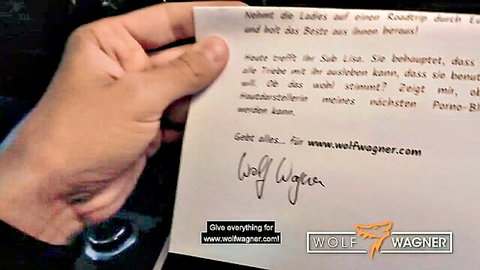 Nehmt die Ladies auf einen Roadtrip durch
und holt das Beste aus ihnen heraus!
Heute trefft ihr Sub Lisa. Sie behauptet, dass
alle Triebe mit ihr ausleben kann, dass sie benut
will. Ob das wohl stimmt? Zeigt mir, ob
Hautdarstellerin meines nächsten Porno-Bl
werden kann.
Gebt alles... für www.wolfwagner.com
Wolf Wagner
Give everything for
www.wolfwagner.com!
WOLF WAGNER